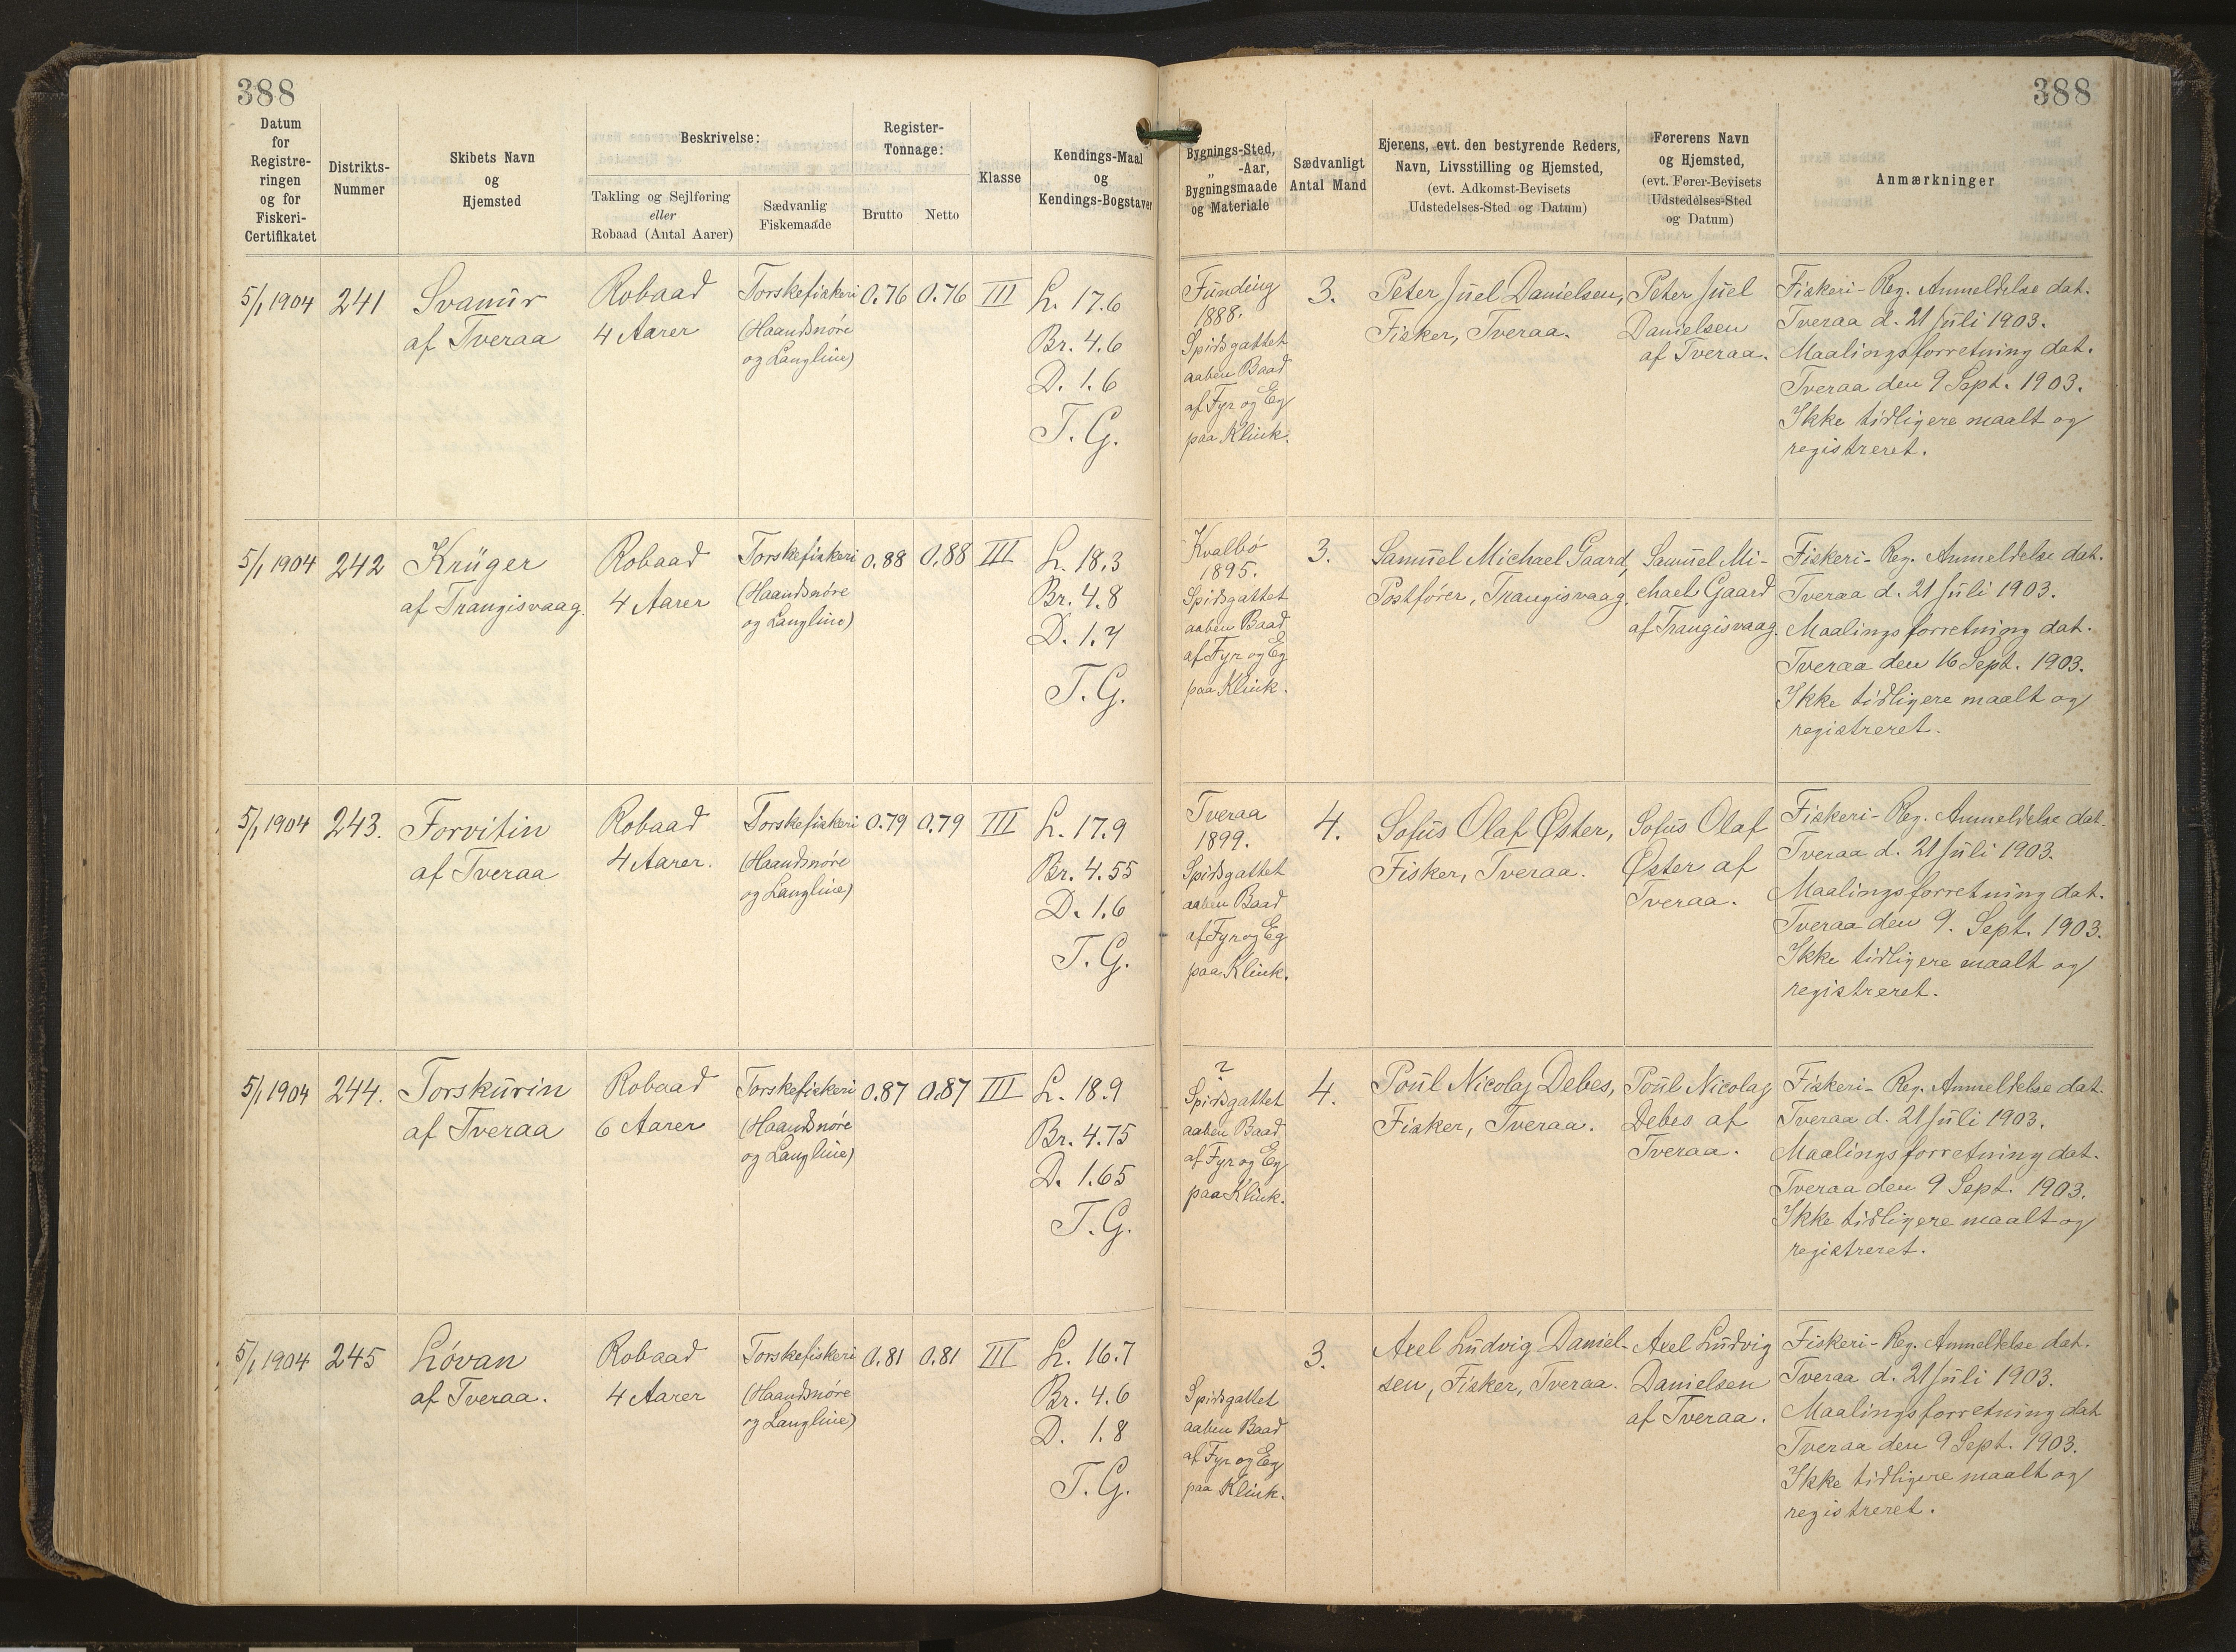 388
388
Datum
for
Registre-
ringen
og for
Fiskeri-
Certifikatet
Distrikts-
Nummer
Skibets Navn
og
Hjemsted
Beskrivelse:
Takling og Sejlføring
eller
Robaad (Antal Aarer)
Sædvanlig
Fiskemaade
Register-
Tonnage:
Brutto
Netto
Klasse
Kendings-Maal
og
Kendings-Bogstaver
Bygnings-Sted,
„ -Aar,
Bygningsmaade
og Materiale
Sædvanligt
Antal Mand
Ejerens, evt. den bestyrende Reders,
Navn, Livsstilling og Hjemsted,
(evt. Adkomst-Bevisets
Udstedelses-Sted og Datum)
Førerens Navn
og Hjemsted,
(evt. Fører-Bevisets
Udstedelses-Sted
og Datum)
Anmærkninger
5/1 1904
241
Svanur
af Tveraa
Robaad
4 Aarer
Torskefiskeri
(Haandsnøre
og Langline)
0.76
0.76
III
L. 17.6
Br. 4.6
D. 1.6
T. G.
Funding
1888.
Spidsgattet
aaben Baad
af Fyr og Eg
paa Klink.
3.
Peter Juel Danielsen,
Fisker, Tveraa.
Peter Juel
Danielsen
af Tveraa.
Fiskeri-Reg. Anmeldelse dat.
Tveraa d. 21 Juli 1903.
Maalingsforretning dat.
Tveraa den 9 Sept. 1903.
Ikke tidligere maalt og
registreret.
5/1 1904
242
Krüger
af Trangisvaag.
Robaad
4 Aarer
Torskefiskeri
(Haandsnøre
og Langline)
0.88
0.88
III
L. 18.3
Br. 4.8
D. 1.7
T. G.
Kvalbø
1895.
Spidsgattet
aaben Baad
af Fyr og Eg
paa Klink.
3.
Samuel Michael Gaard,
Postfører, Trangisvaag.
Samuel Mi-
chael Gaard
af Trangisvaag.
Fiskeri-Reg. Anmeldelse dat.
Tveraa d. 21 Juli 1903.
Maalingsforretning dat.
Tveraa den 16 Sept. 1903.
Ikke tidligere maalt og
registreret.
5/1 1904
243.
Forvitin
af Tveraa
Robaad
4 Aarer.
Torskefiskeri
(Haandsnøre
og Langline)
0.79
0.79
III
L. 17.9
Br. 4.55
D. 1.6
T. G.
Tveraa
1899.
Spidsgattet
aaben Baad
af Fyr og Eg
paa Klink.
4.
Sofus Olaf Øster,
Fisker, Tveraa.
Sofus Olaf
Øster af
Tveraa.
Fiskeri-Reg. Anmeldelse dat.
Tveraa d. 21 Juli 1903.
Maalingsforretning dat.
Tveraa den 9. Sept. 1903.
Ikke tidligere maalt og
registreret.
5/1 1904
244.
Torskurin
af Tveraa
Robaad
6 Aarer
Torskefiskeri
(Haandsnøre
og Langline)
0.87
0.87
III
L. 18.9
Br. 4.75
D. 1.65
T. G.
?
Spidsgattet
aaben Baad
af Fyr og Eg
paa Klink.
4.
Poul Nicolaj Debes,
Fisker, Tveraa.
Poul Nicolaj
Debes af
Tveraa.
Fiskeri-Reg. Anmeldelse dat.
Tveraa d. 21 Juli 1903.
Maalingsforretning dat.
Tveraa den 9 Sept. 1903.
Ikke tidligere maalt og
registreret.
5/1 1904
245
Løvan
af Tveraa.
Robaad
4 Aarer
Torskefiskeri
(Haandsnøre
og Langline)
0.81
0.81
III
L. 16.7
Br. 4.6
D. 1.8
T. G.
Spidsgattet
aaben Baad
af Fyr og Eg
paa Klink.
3.
Axel Ludvig Daniel-
sen, Fisker, Tveraa.
Axel Ludvig
Danielsen
af Tveraa.
Fiskeri-Reg. Anmeldelse dat.
Tveraa d. 21 Juli 1903.
Maalingsforretning dat
Tveraa den 9 Sept. 1903.
Ikke tidligere maalt og
registreret.